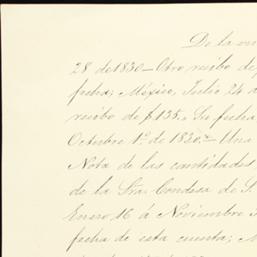 De la mi
28 de 1830 — Otro recibo de
fecha; México, Julio 24 d
recibo de $135. Su fecha
Octubre 1º de 1830. — Una
Nota de las cantidades
de la Sra. Condesa de S.
Enero 16 á Noviembre
fecha de esta cuenta; M